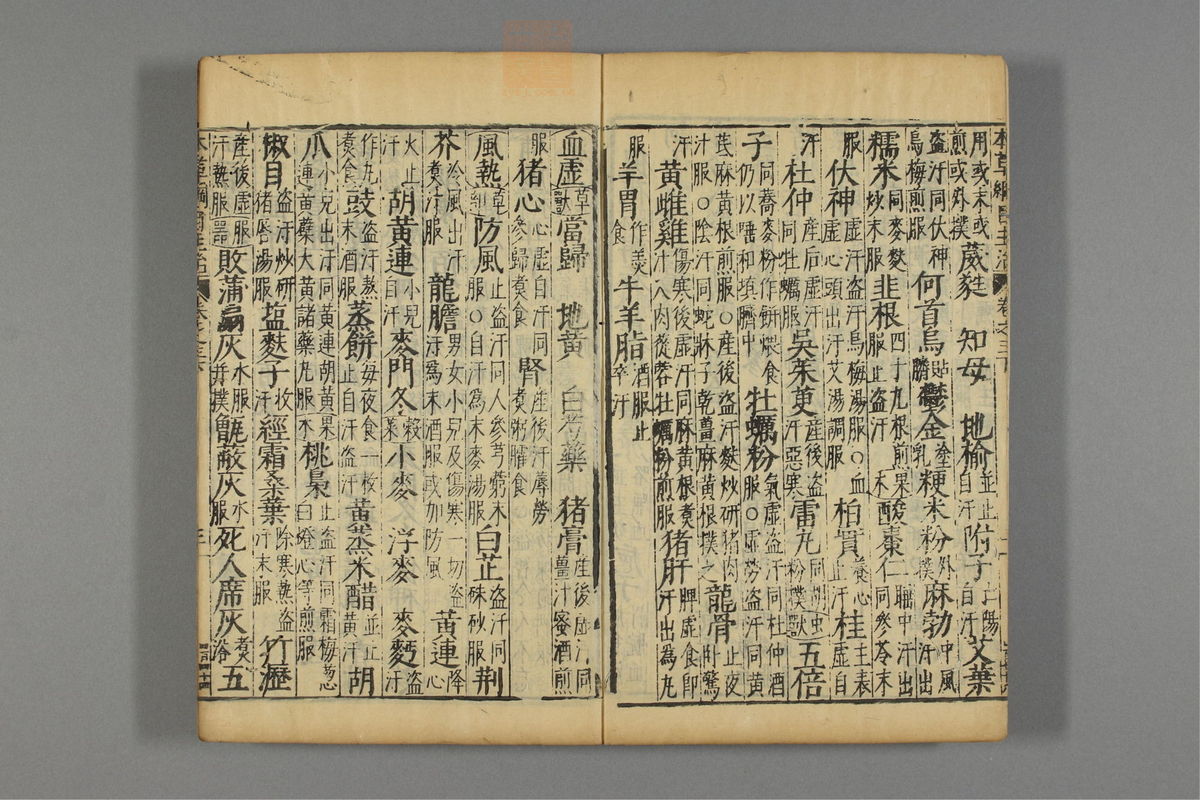 用或末或煎或外撲葳蕤 知母 地榆並止自汗附子亡陽自汗艾葉
盜汗同伏神烏梅煎服何首烏貼臍鬱金塗乳粳米粉外撲麻勃中風汗出
糯米同麥麩炒末服韭根四十九根煎服止盜汗果木酸棗仁睡中汗出同參苓末
服伏神虛汗盜汗烏梅湯服○血虛心頭出汗艾湯調服柏實養心止汗桂主表虛自
汗杜仲產后虛汗同牡蠣服吳茱萸產後盜汗惡寒雷丸同胡粉撲虫獸五倍
子同蕎麥粉作餅煨食仍以唾和填臍中牡蠣粉氣虛盜汗同杜仲酒服○虛勞盜汗同黃
芪麻黃根煎服○產後盜汗麩炒研猪肉汁服○陰汗同蛇牀子乾薑麻黃根撲之龍骨止夜臥驚
汗黃雌雞傷寒後虛汗同麻黃根煮汁入肉蓯蓉牡蠣粉煎服猪肝脾虛食即汗出為丸
服羊胃作羹食牛羊脂酒服止卒汗
血虛草獸當歸 地黃 白芍藥 猪膏產後虛汗同薑汁蜜酒煎
服猪心心虛自汗同參歸煮食腎產後汗蓐勞煮粥臛食
風熱草部防風止盜汗同人參芎藭末服○自汗為末麥湯服白芷盜汗同硃砂服荆
芥冷風出汗煮汁服龍膽男女小兒及傷寒一切盜汗為末酒服或加防風黃連降心
火止汗胡黃連小兒自汗麥門冬穀菜小麥 浮麥 麥麪盜汗
作丸煮食豉盜汗熬末酒服蒸餅每夜食一枚止自汗盜汗黃蒸米醋並止黃汗胡
瓜小兒出汗同黃連胡黃連黃蘗大黃諸藥丸服果木桃梟盜汗同霜梅葱白燈心等煎服
椒目盜汗炒研猪唇湯服塩麩子收汗經霜桑葉除寒熱盜汗末服竹瀝
產後虛汗熱服服器敗蒲扇灰水服并撲甑蔽灰水服死人席灰煮浴五